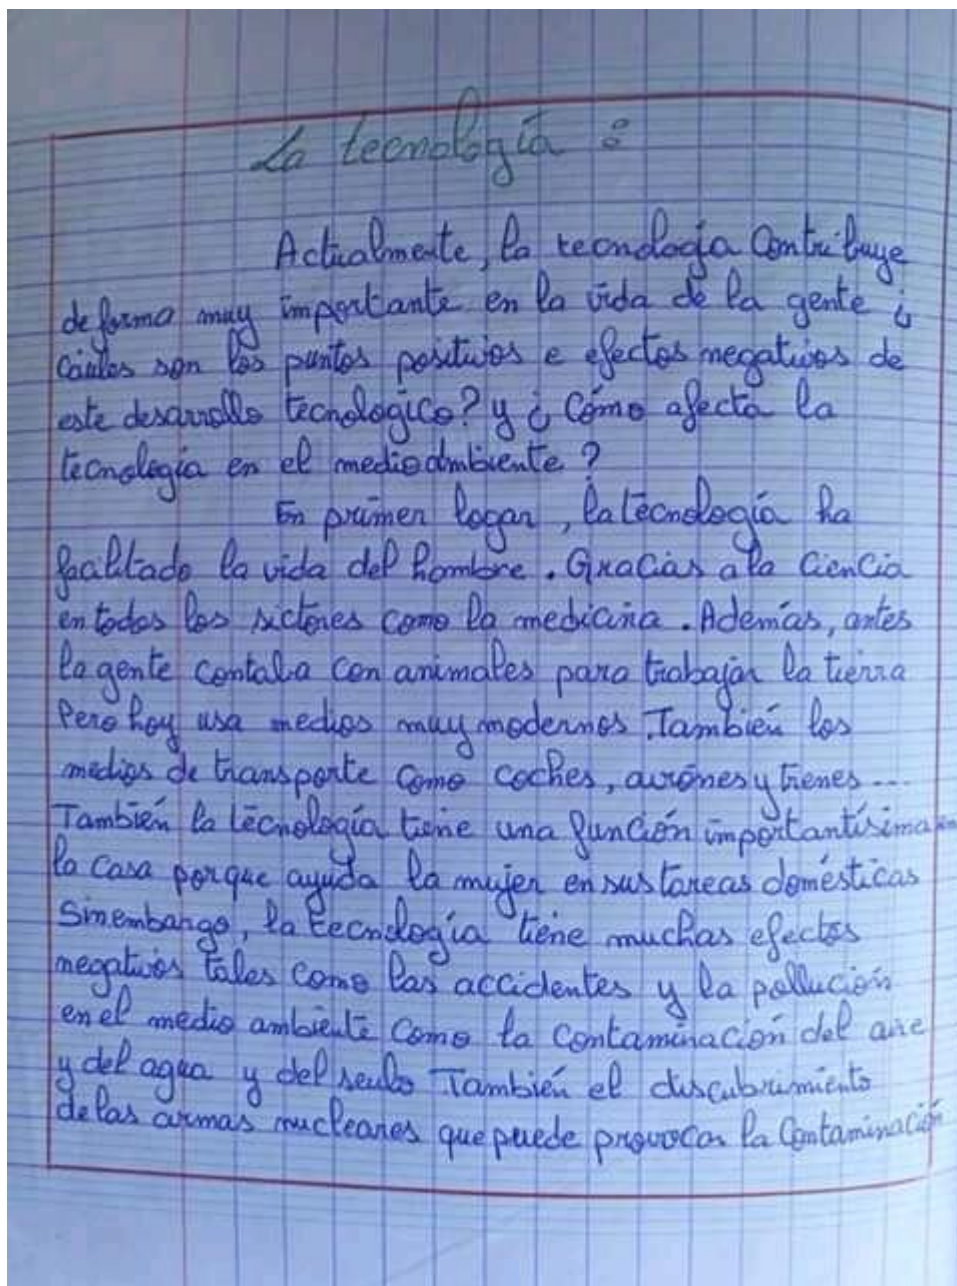 La tecnología :
Actualmente, la tecnología Contribuye
de forma muy importante en la vida de la gente ¿
Cáules son los puntos positivos e efectos negativos de
este desarrollo tecnologico? y ¿ Cómo afecta la
tecnologia en el medio ambiente ?
En primer logar, la tecnología ha
facilitado la vida del hombre. Gracias a la Ciencia
en todos los sictores como la medicina. Además, antes
la gente contaba con animales para trabajar la tierra
Pero hoy usa medios muy modernos. También los
medios de transporte como coches, aviones y trenes ...
También la tecnología tiene una función importantísima en
la Casa porque ayuda la mujer en sus tareas domésticas
Sinembargo, la tecnología tiene muchas efectos
negativos tales como las accidentes y la pollución
en el medio ambiente Como la Contaminación del aire
y del agua y del seulo También el discubrimiento
de las armas nucleares que puede provocar la Contaminación